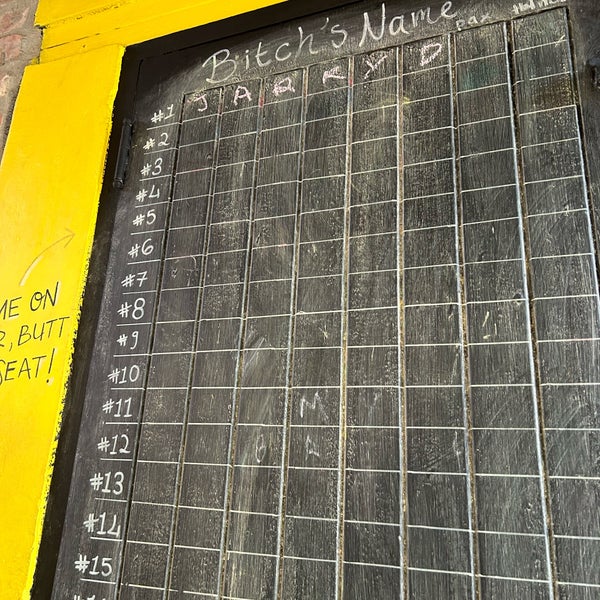 Bitch's Name
pax
#1 J A R R Y D
#2
#3
#4
#5
#6
#7
#8
#9
#10
#11 M
#12
#13
#14
#15
ME ON
R, BUTT
SEAT!